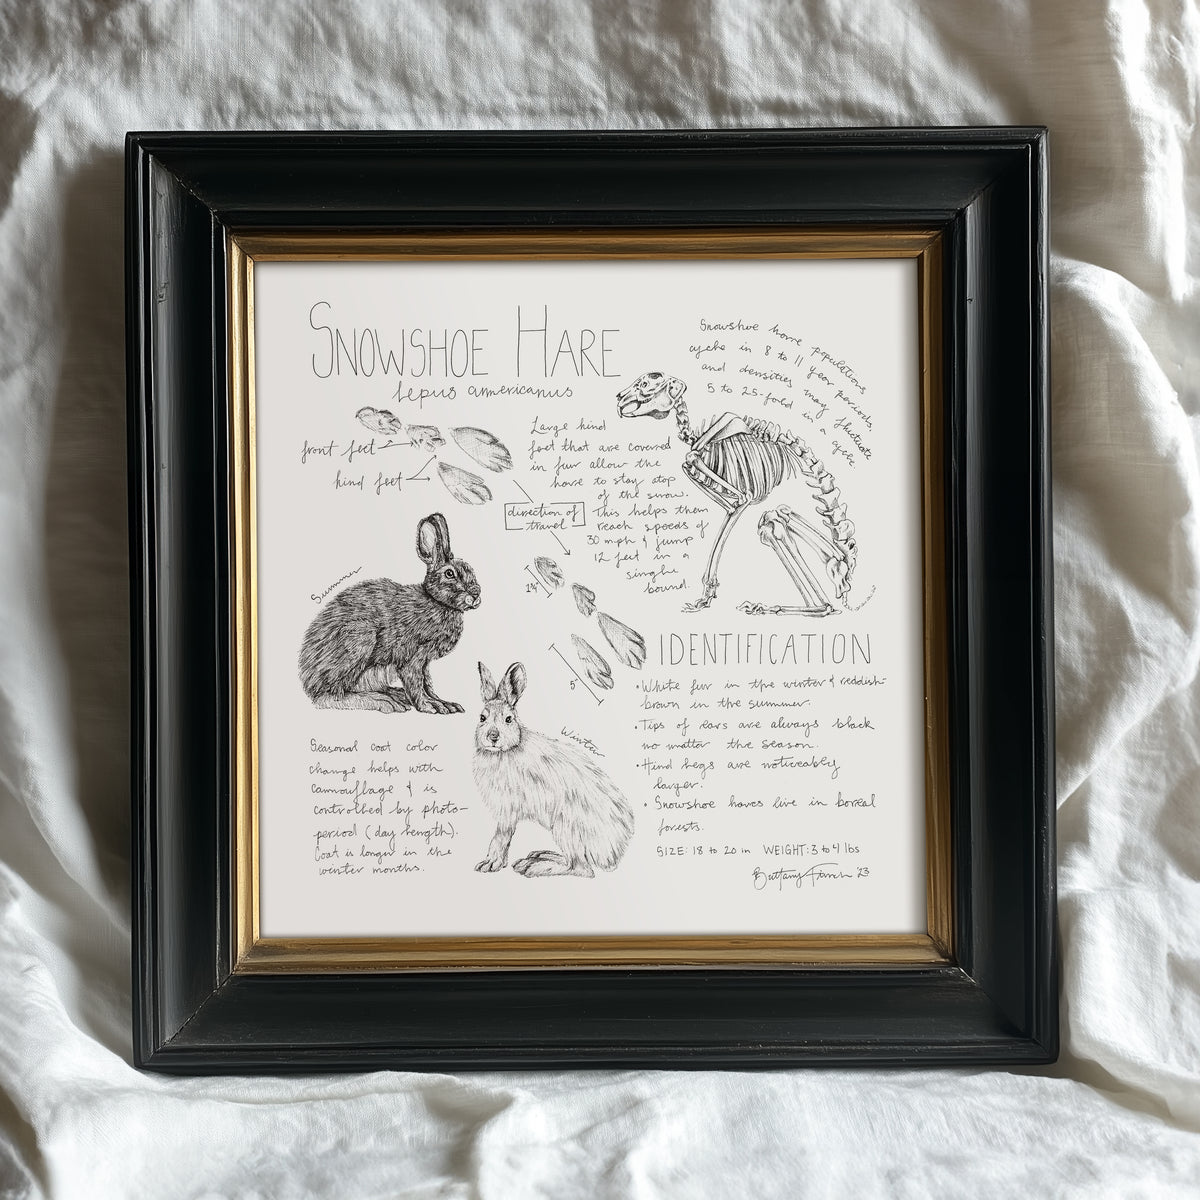 SNOWSHOE HARE
Lepus americanus
front feet
hind feet
Large hind
feet that are covered
in fur allow the
hare to stay atop
of the snow.
This helps them
reach speeds of
30 mph & jump
12 feet in a
single
bound.
Snowshoe hare populations
cycle in 8 to 11 year periods,
and densities may fluctuate
5 to 25-fold in a cycle
direction of
travel
1¾"
5"
Summer
Winter
Seasonal coat color
change helps with
camouflage & is
controlled by photo-
period (day length).
Coat is longer in the
winter months.
IDENTIFICATION
• White fur in the winter & reddish-
brown in the summer.
• Tips of ears are always black
no matter the season.
• Hind legs are noticeably
larger.
• Snowshoe hares live in boreal
forests.
SIZE: 18 to 20 in WEIGHT: 3 to 4 lbs
Brittany '23